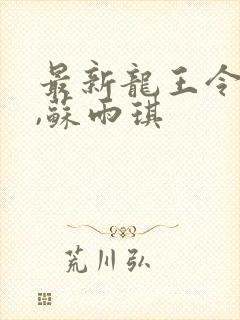 最新龍王令
,蘇雨琪
荒川弘